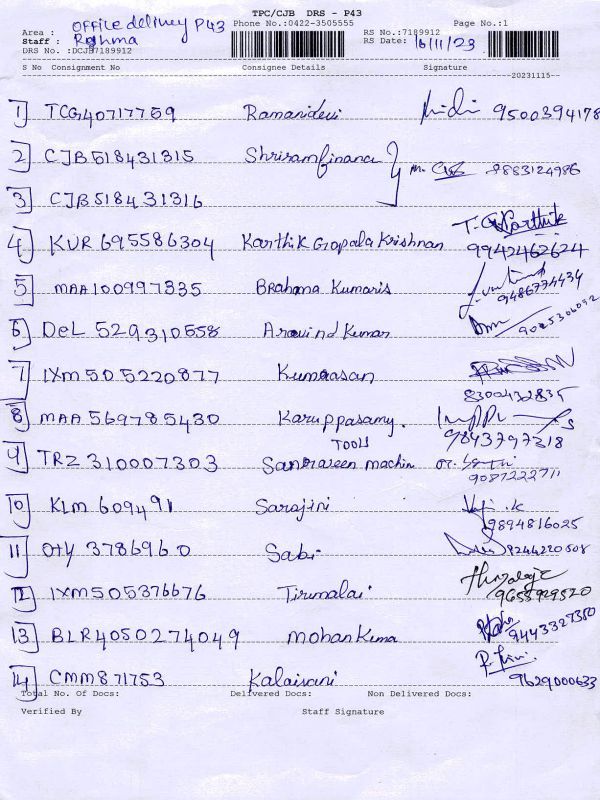 TPC/CJB DRS - P43
Area : office delivery P43 Phone No.:0422-3505555 Page No.:1
Staff : Reshma RS No.:7189912
DRS No.:DCJB7189912 RS Date: 16/11/23
S No Consignment No Consignee Details Signature
20231115
1 TCG40717759 Ramanidevi 9500394178
2 CJB518431315 Shriramfinance 9863124986
3 CJB518431316
4 KUR695586304 Karthik Gopala Krishnan T. G Karthik 9942462624
5 MAA100997335 Brahma Kumaris 9486774434
6 DeL 529310558 Aravind Kumar 9025306092
7 IXM505220877 Kumarasan 8300432835
8 MAA 569785430 Karuppasamy. 9843797318
TOOLS
9 TRZ 310007303 machin 9087222711
10 KLM 609491 Sarojini 9894816025
11 Oty 3786960 Sabi 8244220508
12 IXM505376676 Tirumalai
13 BLR4050274049 Mohan Kuma 9443327350
14 CMM871753 Kalaivani 9629000633
Total No. Of Docs: Delivered Docs: Non Delivered Docs:
Verified By Staff Signature